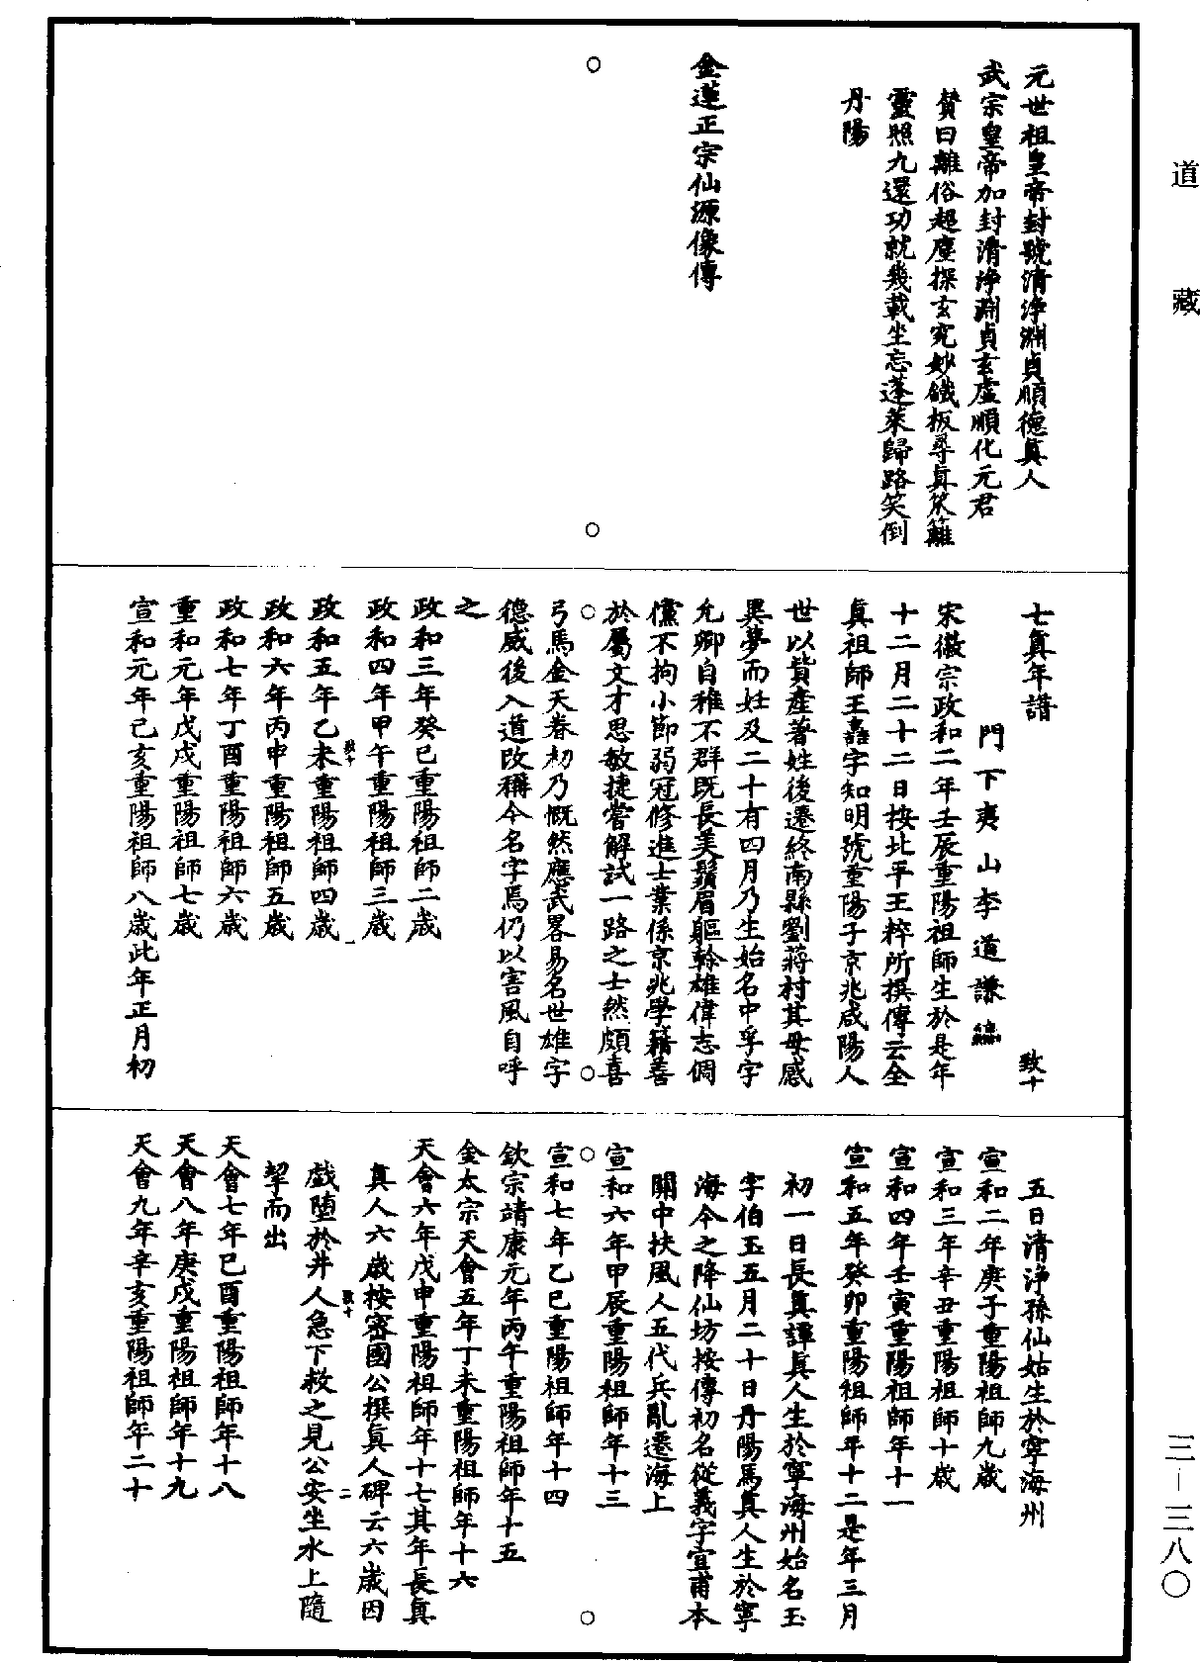 道藏
元世祖皇帝封號清淨淵貞順德真人
武宗皇帝加封清淨淵貞玄虛順化元君
贊曰離俗超塵探玄究妙鐵板尋真笊籬
靈照九還功就幾載坐忘蓬萊歸路笑倒
丹陽
金蓮正宗仙源像傳
七真年譜
致十
門下夷山李道謙編
宋徽宗政和二年壬辰重陽祖師生於是年
十二月二十二日按北平王粹所撰傳云全
真祖師王嚞字知明號重陽子京兆咸陽人
世以貲產著姓後遷終南縣劉蔣村其母感
異夢而妊及二十有四月乃生始名中孚字
允卿自稚不群既長美鬚眉軀幹雄偉志倜
儻不拘小節弱冠修進士業係京兆學籍善
於屬文才思敏捷嘗解試一路之士然頗喜
弓馬金天眷初乃慨然應武畧易名世雄字
德威後入道改稱今名字焉仍以害風自呼
之
政和三年癸巳重陽祖師二歲
政和四年甲午重陽祖師三歲
致十
一
政和五年乙未重陽祖師四歲
政和六年丙申重陽祖師五歲
政和七年丁酉重陽祖師六歲
重和元年戊戌重陽祖師七歲
宣和元年己亥重陽祖師八歲此年正月初
五日清淨孫仙姑生於寧海州
宣和二年庚子重陽祖師九歲
宣和三年辛丑重陽祖師十歲
宣和四年壬寅重陽祖師年十一
宣和五年癸卯重陽祖師年十二是年三月
初一日長真譚真人生於寧海州始名玉
字伯玉五月二十日丹陽馬真人生於寧
海今之降仙坊按傳初名從義字宜甫本
關中扶風人五代兵亂遷海上
宣和六年甲辰重陽祖師年十三
宣和七年乙巳重陽祖師年十四
欽宗靖康元年丙午重陽祖師年十五
金太宗天會五年丁未重陽祖師年十六
天會六年戊申重陽祖師年十七其年長真
真人六歲按密國公撰真人碑云六歲因
致十
二
戲墮於井人急下救之見公安坐水上隨
挈而出
天會七年己酉重陽祖師年十八
天會八年庚戌重陽祖師年十九
天會九年辛亥重陽祖師年二十
三—三八〇